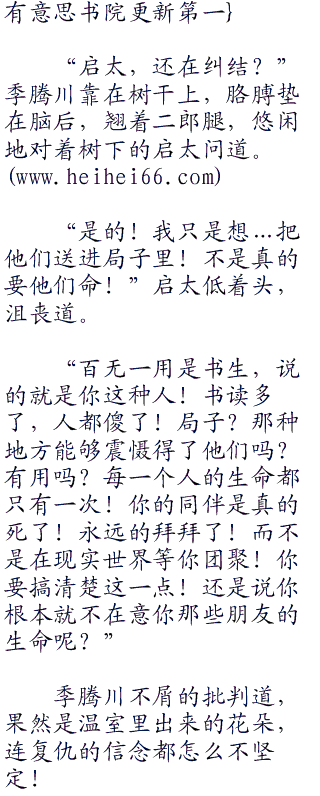 有意思书院更新第一}
“启太，还在纠结？”
季腾川靠在树干上，胳膊垫
在脑后，翘着二郎腿，悠闲
地对着树下的启太问道。
(www.heihei66.com)
“是的！我只是想…把
他们送进局子里！不是真的
要他们命！”启太低着头，
沮丧道。
“百无一用是书生，说
的就是你这种人！书读多
了，人都傻了！局子？那种
地方能够震慑得了他们吗？
有用吗？每一个人的生命都
只有一次！你的同伴是真的
死了！永远的拜拜了！而不
是在现实世界等你团聚！你
要搞清楚这一点！还是说你
根本就不在意你那些朋友的
生命呢？”
季腾川不屑的批判道，
果然是温室里出来的花朵，
连复仇的信念都怎么不坚
定！